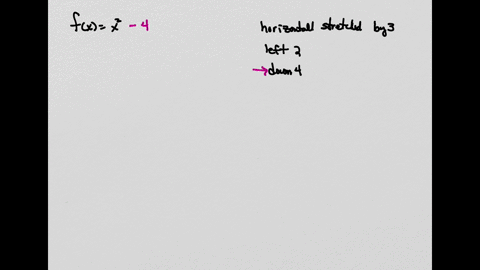 f(x) = x² - 4
horizontall stretched by 3
left 2
→ down 4